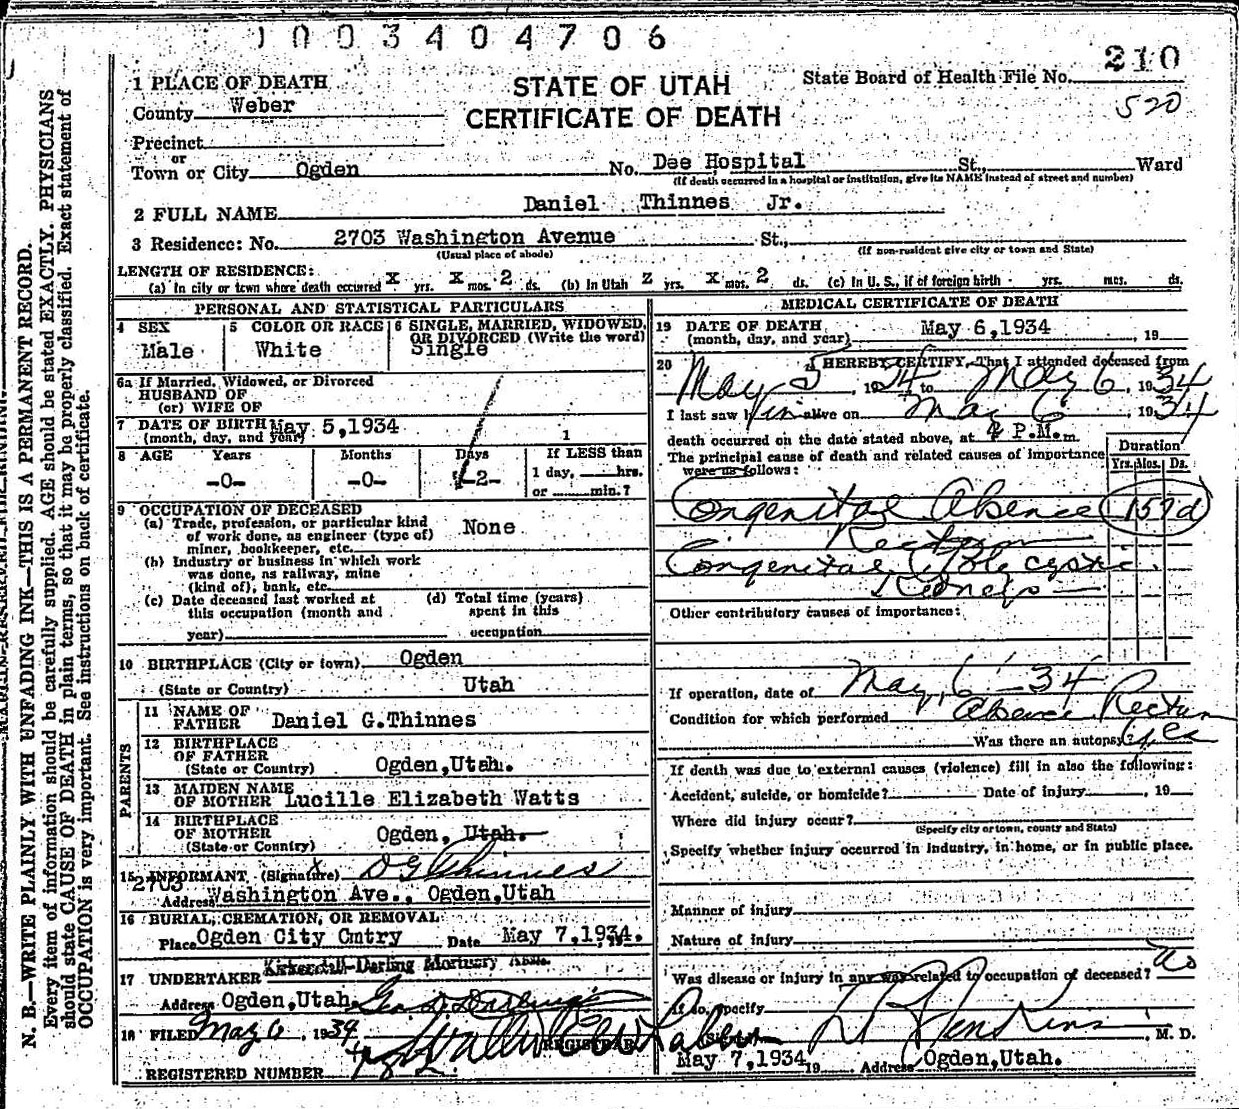 1003404706
STATE OF UTAH
CERTIFICATE OF DEATH
State Board of Health File No. 210
520
1 PLACE OF DEATH
County Weber
Precinct
or
Town or City Ogden No. Dee Hospital St., Ward
(If death occurred in a hospital or institution, give its NAME instead of street and number)
2 FULL NAME Daniel Thinnes Jr.
3 Residence: No. 2703 Washington Avenue St.,
(Usual place of abode) (If non-resident give city or town and State)
LENGTH OF RESIDENCE:
(a) In city or town where death occurred x yrs. x mos. 2 ds. (b) In Utah z yrs. x mos. 2 ds. (c) In U. S., if of foreign birth yrs. mos. ds.
PERSONAL AND STATISTICAL PARTICULARS
4 SEX
Male
5 COLOR OR RACE
White
6 SINGLE, MARRIED, WIDOWED, OR DIVORCED (Write the word)
Single
6a If Married, Widowed, or Divorced
HUSBAND OF
(or) WIFE OF
7 DATE OF BIRTH May 5,1934
(month, day, and year)
1
8 AGE Years Months Days If LESS than
-0- -0- -2- 1 day, hrs.
or min.?
9 OCCUPATION OF DECEASED
(a) Trade, profession, or particular kind
of work done, as engineer (type of)
miner, bookkeeper, etc.
None
(b) Industry or business in which work
was done, as railway, mine
(kind of), bank, etc.
(c) Date deceased last worked at
this occupation (month and
year)
(d) Total time (years)
spent in this
occupation
10 BIRTHPLACE (City or town) Ogden
(State or Country) Utah
PARENTS
11 NAME OF
FATHER Daniel G.Thinnes
12 BIRTHPLACE
OF FATHER
(State or Country) Ogden,Utah.
13 MAIDEN NAME
OF MOTHER Lucille Elizabeth Watts
14 BIRTHPLACE
OF MOTHER
(State or Country) Ogden, Utah.
15 INFORMANT (Signature) x D G Thinnes
2703
Address Washington Ave., Ogden,Utah
16 BURIAL, CREMATION, OR REMOVAL
Place Ogden City Cmtry Date May 7,1934.
17 UNDERTAKER Kirkendall-Darling Mortuary
Address Ogden,Utah. Geo. D Darling
18 FILED May 6, 1934
REGISTRAR
REGISTERED NUMBER
MEDICAL CERTIFICATE OF DEATH
19 DATE OF DEATH
(month, day, and year) May 6,1934 , 19
20 I HEREBY CERTIFY, That I attended deceased from
May 5, 1934 to May 6, 1934
I last saw him alive on May 6 1934
death occurred on the date stated above, at 4 P.M. m.
The principal cause of death and related causes of importance
were as follows:
Duration
Yrs. Mos. Ds.
Congenital Absence 157d
Rectum
Congenital Polycystic
Kidneys
Other contributory causes of importance:
If operation, date of May, 6 - 34
Condition for which performed Absence Rectum
Was there an autopsy? Yes
If death was due to external causes (violence) fill in also the following:
Accident, suicide, or homicide? Date of injury , 19
Where did injury occur?
(Specify city or town, county and State)
Specify whether injury occurred in industry, in home, or in public place.
Manner of injury
Nature of injury
Was disease or injury in any way related to occupation of deceased? No
If so, specify
Jenkins , M. D.
May 7,1934 19 Address Ogden,Utah.
N. B.—WRITE PLAINLY WITH UNFADING INK—THIS IS A PERMANENT RECORD.
Every item of information should be carefully supplied. AGE should be stated EXACTLY. PHYSICIANS
should state CAUSE OF DEATH in plain terms, so that it may be properly classified. Exact statement of
OCCUPATION is very important. See instructions on back of certificate.